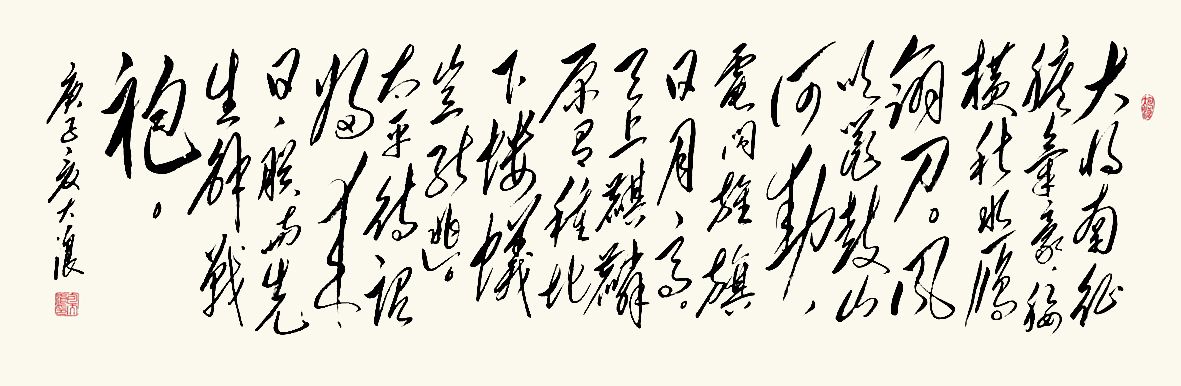 大将南征
膽氣豪，腰
横秋水雁
翎刀。風
吹鼍鼓山
河動，
電闪旌旗
日月，高。
天上麒麟
原有種
下蝼蟻
岂能逃。
太平待詔
歸来
日，朕与先生
生解戰
袍。
庚子夏大浪